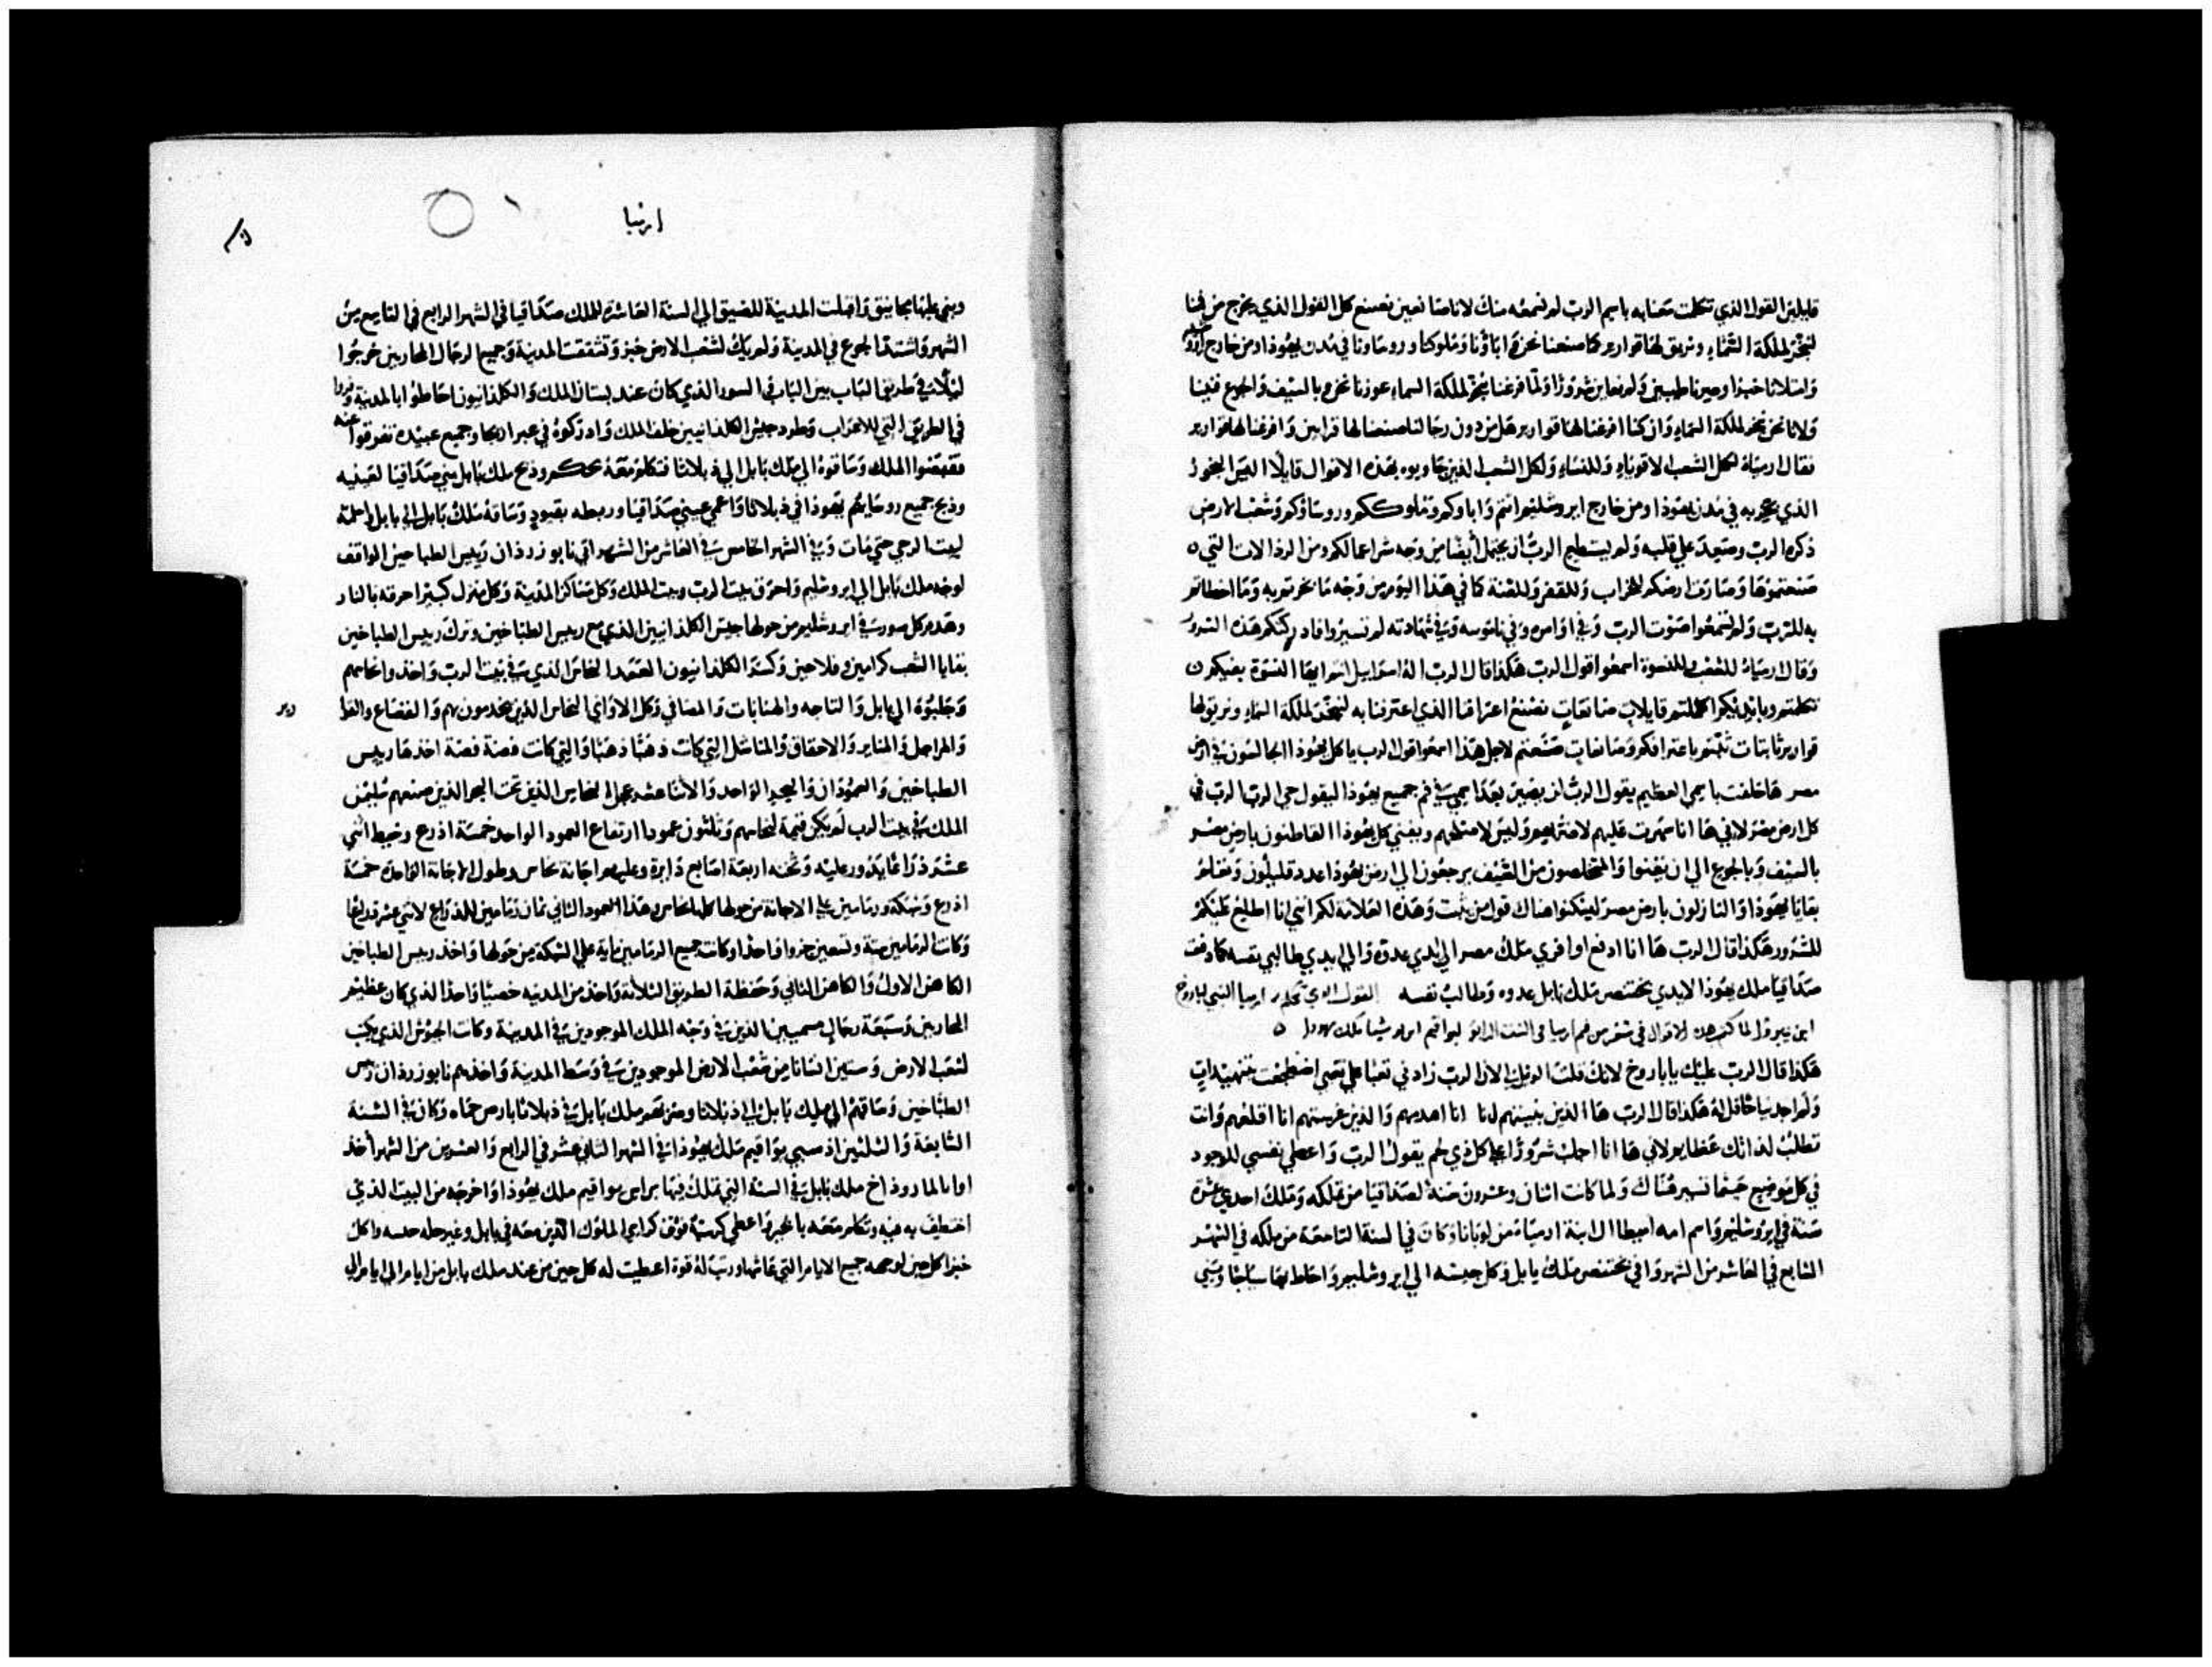 قايلين القول الذي تكلمت معنا به باسم الرب لم نسمعه منك لاننا صانعين نصنع كل القول الذي يخرج من فمنا
لنبخر لملكة السماء ونريق لها قوارير كما صنعنا نحن واباؤنا وملوكنا وروساونا في مدن يهوذا ومن خارج
وامتلانا خبزا وصرنا طيبين ولم نعاين شرورا ولما فرغنا نبخر لملكة السماء عوزنا نحن وبالسيف والجوع فنينا
ولاننا نحن نبخر لملكة السماء وان كنا افرغنا لها قوارير هل من دون رجالنا صنعنا لها قرابين وافرغنا لها قوارير
فقال ارمياء لكل الشعب الاقوياء وللنساء ولكل الشعب الذين جاوبوه بهذه الاقوال قايلا اليس البخور
الذي بخرتم به في مدن يهوذا ومن خارج ايروشليم انتم واباوكم وملوككم وروساوكم وشعب الارض
ذكره الرب وصعد على قلبه ولم يستطيع الرب ان يحتمل ايضا من وجه شر اعمالكم ومن الرذالات التي
صنعتموها وصارت ارضكم للخراب وللقفر وللعنة كما في هذا اليوم من وجه ما بخرتم به وما اخطاتم
به للرب ولم تسمعوا صوت الرب وفي اوامره وفي ناموسه وفي شهادته لم تسيروا فادركتكم هذه الشرور
وقال ارمياء للشعب وللنسوة اسمعوا قول الرب هكذا قال الرب اله اسراييل انتم ايها النسوة بفيكم
تكلمتم وبايديكم اكملتم قايلات صانعات نصنع اعترافنا الذي اعترفنا به لنبخر لملكة السماء ونريق لها
قوارير ثابتات ثبتم باعترافكم وصانعات صنعتم لاجل هذا اسمعوا قول الرب يا كل يهوذا الجالسون في ارض
مصر ها حلفت باسمي العظيم يقول الرب ان يصير بعد اسمي في فم جميع يهوذا ليقول حي الرب الرب في
كل ارض مصر لاني ها انا سهرت عليهم لاضر بهم وليس لاصلحهم ويفنى كل يهوذا القاطنون بارض مصر
بالسيف وبالجوع الى ان يفنوا والمتخلصون من السيف يرجعون الى ارض يهوذا عدد قليلون وتعلم
بقايا يهوذا النازلون بارض مصر ليسكنوا هناك قول من يثبت وهذه العلامة لكم انني انا اطلع عليكم
للشرور هكذا قال الرب ها انا ادفع اوافري ملك مصر الى ايدي عدوه والى ايدي طالبي نفسه كما دفعت
صداقيا ملك يهوذا لايدي بختنصر ملك بابل عدوه وطالب نفسه القول الذي تكلم ارميا النبي لباروخ
ابن نيروا لما كتب هذه الاقوال في سفر من فم ارميا في السنة الرابعة ليواقيم ابن يوشيا ملك يهودا
هكذا قال الرب عليك يا باروخ لانك قلت الويل لي الان الرب زادني تعبا على تعبي اضطجعت بتنهيدات
ولم اجد نياحا قل له هكذا قال الرب ها الذين بنيتهم انا اهدمهم والذين غرستهم انا اقلعهم وانت
تطلب لذاتك عظايم لاني ها انا اجلب شرورا على كل ذي لحم يقول الرب واعطي نفسي للوجود
في كل موضع حيثما تسير هناك ولما كانت اثنان وعشرون سنة لصداقيا من تملكه وملك احدى عشرة
سنة في ايروشليم واسم امه اميطاال ابنة ارمياء من لوبانا وكان في السنة التاسعة من ملكه في الشهر
السابع في العاشر من الشهر وافى بختنصر ملك بابل وكل جيشه الى ايروشليم واحاط بها سياجا وبني
ارميا
وبنى عليها مجانيق واقبلت المدينة للضيق الى السنة العاشرة للملك صداقيا في الشهر الرابع في التاسع من
الشهر واشتد الجوع في المدينة ولم يك لشعب الارض خبز وتشققت المدينة وجميع الرجال المحاربين خرجوا
ليلا في طريق الباب بين الباب في السور الذي كان عند بستان الملك والكلدانيون احاطوا بالمدينة وفروا
في الطريق التي للاعراب وطرد جيش الكلدانيين خلف الملك وادركوه في عبر اريحا وجميع عبيده تفرقوا عنه
فقبضوا الملك وساقوه الى ملك بابل الى ذبلاثا فتكلم معه بحكم وذبح ملك بابل بني صداقيا لعينيه
وذبح جميع روسايهم يهوذا في ذبلاثا واعمى عيني صداقيا وربطه بقيود وساقه ملك بابل الى بابل واحله
لبيت الرحي حتى مات وفي الشهر الخامس في العاشر من الشهر اتى نابوزرذان رييس الطباخين الواقف
لوجه ملك بابل الى ايروشليم واحرق بيت الرب وبيت الملك وكل مساكن المدينة وكل منزل كبير احرقه بالنار
وهدم كل سور في ايروشليم من حولها جيش الكلدانيين الذي مع رييس الطباخين وترك رييس الطباخين
بقايا الشعب كرامين وفلاحين وكسر الكلدانيون العمد النحاس الذي في بيت الرب واخذوا نحاسهم
وجلبوه الى بابل والتاجه والهنابات والمصافي وكل الاواني النحاس الذين يخدمون بهم والقصاع
والمراجل والمناير والاحقاق والمناشل التي كانت ذهبا ذهبا والتي كانت فضة فضة اخذها رييس
الطباخين والعمودان والبحر الواحد والاثنا عشر عجل النحاس الذين تحت البحر الذين صنعهم سليمن
الملك في بيت الرب لم يكن قيمة لنحاسهم وثلثون عمودا ارتفاع العمود الواحد خمسة اذرع وخيط اثني
عشر ذراعا يدور عليه وثخنه اربعة اصابع دايرة وعليهم اجانة نحاس وطول الاجانة الواحدة خمسة
اذرع وشبكة ورمامين على الاجانة من حولها كلها نحاس وهذا العمود الثاني ثمان رمامين للذراع لاثني عشر ذراعا
وكانت الرمامين ستة وتسعين جزوا واحدا وكانت جميع الرمامين ماية على الشبكة من حولها واخذ رييس الطباخين
الكاهن الاول والكاهن الثاني وحفظة الطريق الثلاثة واخذ من المدينه خصيا واحدا الذي كان عظيم
المحاربين وسبعة رجال مسميين الذين في وجه الملك الموجودين في المدينة وكاتب الجيوش الذي يكتب
لشعب الارض وستين انسانا من شعب الارض الموجودين في وسط المدينة واخذهم نابوزرذان رييس
الطباخين وساقهم الى ملك بابل الى ذبلاثا وضربهم ملك بابل في ذبلاثا بارض حماه وكان في السنة
السابعة والثلثين اذ سبي يواقيم ملك يهوذا في الشهر الثاني عشر في الرابع والعشرين من الشهر اخذ
اولا لمارودخ ملك بابل في السنة التي تملك فيها براس يواقيم ملك يهوذا واخرجه من البيت الذي
احتفظ به فيه وتكلم معه بالخير واعطى كرسيه فوق كراسي الملوك الذين معه في بابل وغير حلة حبسه واكل
خبزا كل حين لوجهه جميع الايام التي عاشها ورتب له قوة اعطيت له كل حين من عند ملك بابل من ايام الى ايام الى